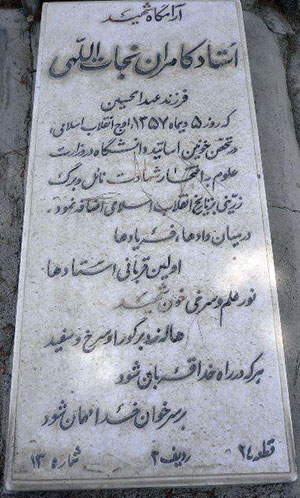 آرامگاه شهید
استاد کامران نجات اللهی
فرزند عبدالحسین
که روز ۵ دیماه ۱۳۵۷ اوج انقلاب اسلامی
در تحصن خونین اساتید دانشگاه در وزارت
علوم به افتخار شهادت نائل و برگ
زرینی بر تاریخ انقلاب اسلامی اضافه نمود.
در میان دادها، فریادها
اولین قربانی استادها
نور علم و سرخی خون شهید
هاله زد بر گور او سرخ و سفید
هر که در راه خدا قربان شود
بر سر خوان خدا مهمان شود
قطعه ۱۷ ردیف ۲ شماره ۱۳